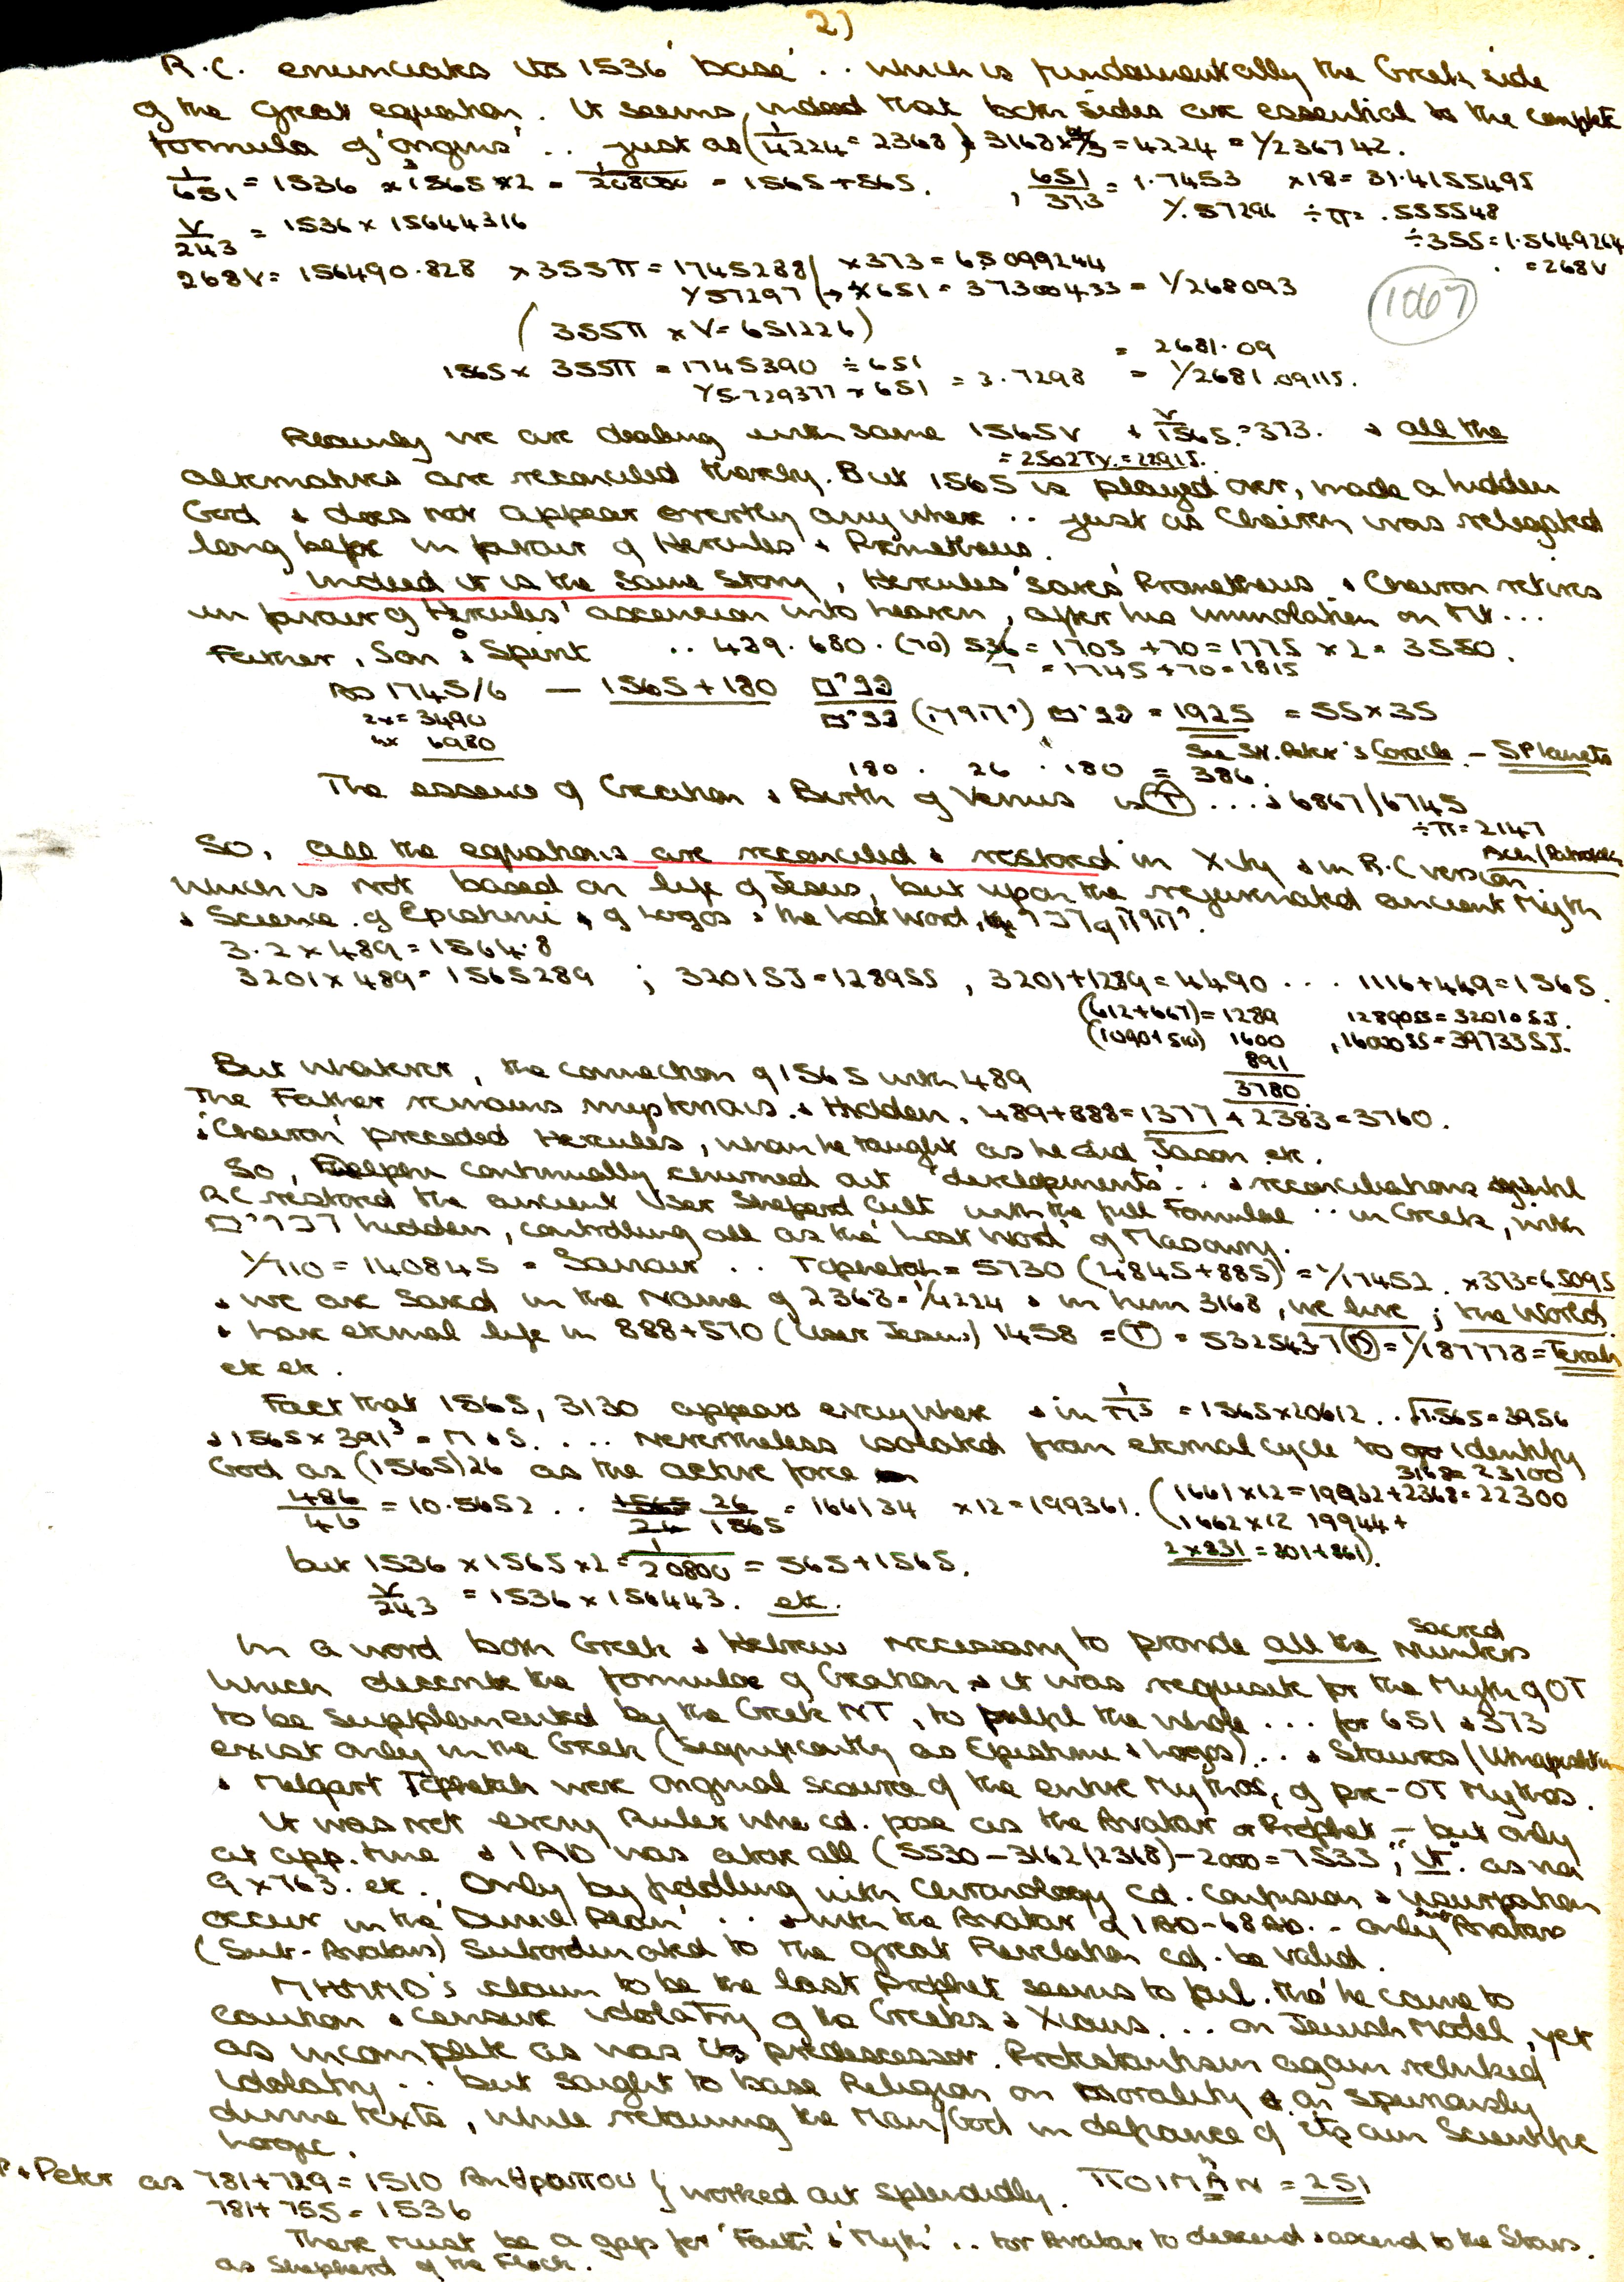 2)
R.C. enunciates its 1536 'base' .. which is fundamentally the Greek side
of the Great equation. It seems indeed that both sides are essential to the complete
formula of 'origins' .. just as (1/4224 = 2368) & 3168 x 4/3 = 4224 = 1/236742.
1/651 = 1536 x 1565 x 2 = 1/20800 = 1565 + 565. , 651/373 = 1.7453 x 18 = 31.4155495
1/.57296 ÷ π = .555548
V/243 = 1536 x 15644316
÷ 355 = 1.5649264
= 268V
268V = 156490.828 x 355π = 1745288 x 373 = 65099244
1/57297 → x 651 = 37300433 = 1/268093
1067
(355π x V = 651226)
1565 x 355π = 1745390 ÷ 651 = 2681.09
1/5.729377 x 651 = 3.7298 = 1/2681.09115.
we are dealing with same 1565V & V/1565 = 373. & all the
= 2502Ty. = 2291J.
alternatives are reconciled thereby. But 1565 is played over, made a hidden
God & does not appear overtly anywhere .. just as Cheiron was relegated
long before in favour of Hercules & Prometheus.
Indeed it is the same Story, Hercules 'saves' Prometheus & Cheiron retires
in favour of Hercules' ascension into heaven, after his immolation on Mt...
Father, Son & Spirit .. 489. 680. (70) 536 = 1705 + 70 = 1775 x 2 = 3550.
7 = 1745 + 70 = 1815
As 1745/6 — 1565 + 180 פנים
פנים (יהוה) פנים = 1925 = 55 x 35
2x = 3490
4x 6980
See St. Peter's Coracle — 5 Planets
180 . 26 . 180 = 386.
The essence of Creation & Birth of Venus is (T) ... & 6867/6745
÷ π = 2147
So, all the equations are reconciled & restored in Xity & in R.C version.
which is not based on life of Jesus, but upon the rejuvenated ancient Myth
& Science. of Epistemi & of Logos & the Lost Word, of יהוה
3.2 x 489 = 1564.8
3201 x 489 = 1565289 ; 3201SJ = 1289SS , 3201 + 1289 = 4490 ... 1116 + 449 = 1565.
(612 + 667) = 1289 12890SS = 32010SJ.
(1090 + 510) 1600 , 16000SS = 39733SJ.
891
3780.
But whatever, the connection of 1565 with 489
The Father remains mysterious & Hidden. 489 + 888 = 1377 + 2383 = 3760.
'Cheiron' preceded Hercules, whom he taught as he did Jason etc.
So, continually churned out 'developments' .. & reconciliations until
R.C restored the ancient User Shepherd Cult with the full Formulae .. in Greek, with
hidden, controlling all as the 'Lost Word' of Masonry.
1/710 = 140845 = Saviour .. Tophetah = 5730 (4845 + 885) = 1/17452. x 373 = 65095
& we are Saved in the Name of 2368 = 1/4224 & in him 3168, we live ; the World
& have eternal life in 888 + 570 (User Jesus) 1458 = (T) = 5325437 = 1/187778 = Terah
etc etc.
Fact that 1565, 3130 appears everywhere & in 1/π³ = 1565 x 20612 .. √1.565 = 3956
& 1565 x 391³ = M & S. ... Nevertheless isolated from eternal cycle to identify
God as (1565)26 as the active force
3168 = 23100
486/46 = 10.5652 .. 26/1565 = 166134 x 12 = 199361. (1661 x 12 = 19932 + 2368 = 22300
1662 x 12 19944 +
2 x 831 = 801 + 861).
but 1536 x 1565 x 2 = 1/20800 = 565 + 1565.
V/243 = 1536 x 156443. etc.
In a word both Greek & Hebrew necessary to provide all the Sacred Numbers
which describe the formulae of Creation & it was requisite for the Myth of OT
to be supplemented by the Greek NT, to fulfil the whole ... for 651 & 373
exist only in the Greek (significantly as Epistemi & Logos) .. & Stauros
& Melqart Tophetah were original source of the entire Mythos, of pre-OT Mythos.
It was not every Ruler who cd. pose as the Avatar or Prophet — but only
at app. time & 1 AD was above all (5530 — 3162 (2368) — 2000 = 7535; "IT". as was
9 x 763. etc., Only by fiddling with Chronology cd. confusion & usurpation
occur in the 'Divine Plan' .. & with the Avatar of 1 AD - 68 AD. .. only Avatars
(Sub-Avatars) Subordinated to the great Revelation cd. be valid.
MHMMD's claim to be the last Prophet seems to fail. tho' he came to
caution & censure idolatry of the Greeks & Xians. .. on Jewish Model, yet
as incomplete as was its predecessor. Protestantism again rebuked
Idolatry .. but sought to base Religion on Morality & on spuriously
divine texts, while retaining the Man/God in defiance of its own Scientific
Logic.
P & Peter as 781 + 729 = 1510 Ανθρωπου } worked out splendidly. ΠΟΙΜΑΝ = 251
781 + 755 = 1536
There must be a gap for 'Faith' & 'Myth' .. for Avatar to descend & ascend to the Stars.
as Shepherd of the Flock.